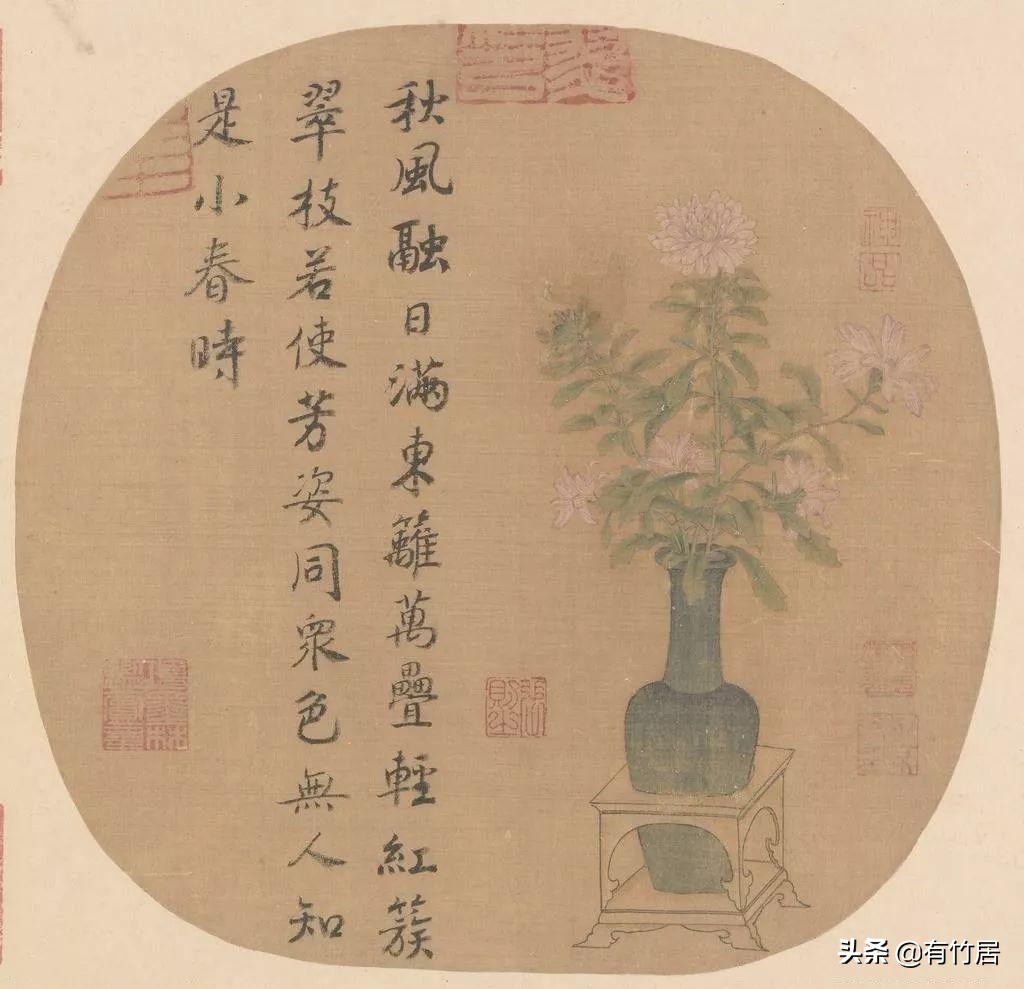 秋風融日滿東籬萬疊輕紅簇
翠枝若使芳姿同衆色無人知
是小春時
头条 @有竹居